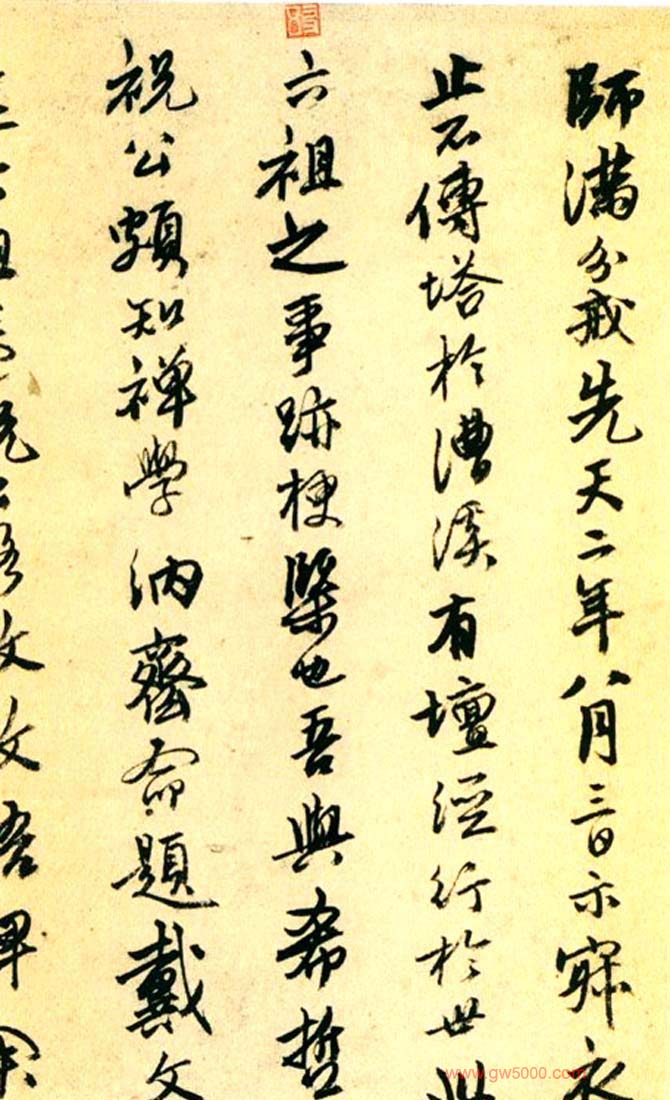 師滿分戒先天二年八月三日示寂衣
止不傳塔於漕溪有壇經行於世此
六祖之事跡梗槩也吾與希哲
祝公頗知禪學納齋命題戴文
www.gw5000.com